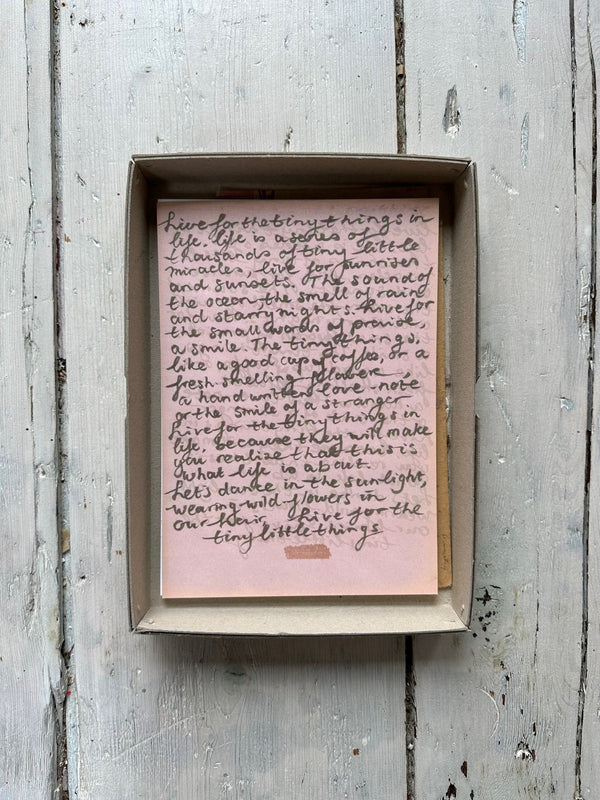 Live for the tiny things in
life. life is a series of
thousands of tiny little
miracles, live for sunrises
and sunsets. The sound of
the ocean, the smell of rain
and starry nights. Live for
the small words of praise,
a smile. The tiny things,
like a good cup of coffee, or a
fresh smelling flower,
a hand written love-note
or the smile of a stranger
Live for the tiny things in
life, because they will make
you realize that this is
what life is about.
Let's dance in the sunlight,
wearing wild-flowers in
our hair, Live for the
tiny little things